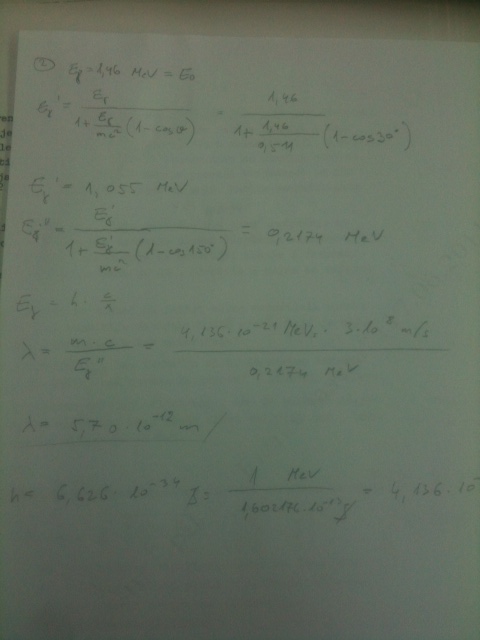 ② Eγ = 1,46 MeV = E₀
Eγ' = Eγ / (1 + Eγ/mc² (1 - cos θ)) = 1,46 / (1 + 1,46/0,511 (1 - cos 30°))
Eγ' = 1,055 MeV
Eγ'' = Eγ' / (1 + Eγ'/mc² (1 - cos 150°)) = 0,2174 MeV
Eγ = h · c/λ
λ = m · c / Eγ'' = 4,136 · 10⁻²¹ MeVs · 3 · 10⁸ m/s / 0,2174 MeV
λ = 5,70 · 10⁻¹² m
h = 6,626 · 10⁻³⁴ 1 MeV / 10⁻¹³ J = 4,136 · 10